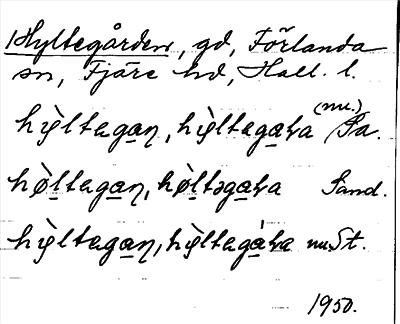 Hyltegården, gd, Förlanda
sn, Fjäre hd, Hall. l.
(nu.)
hỳltagan̥, hỳltegaʀa Sa.
hø̀ltagan̥, hø̀ltəgaʀa Sand.
hỳltagan̥, hỳltegàʀa nu. St.
1950.